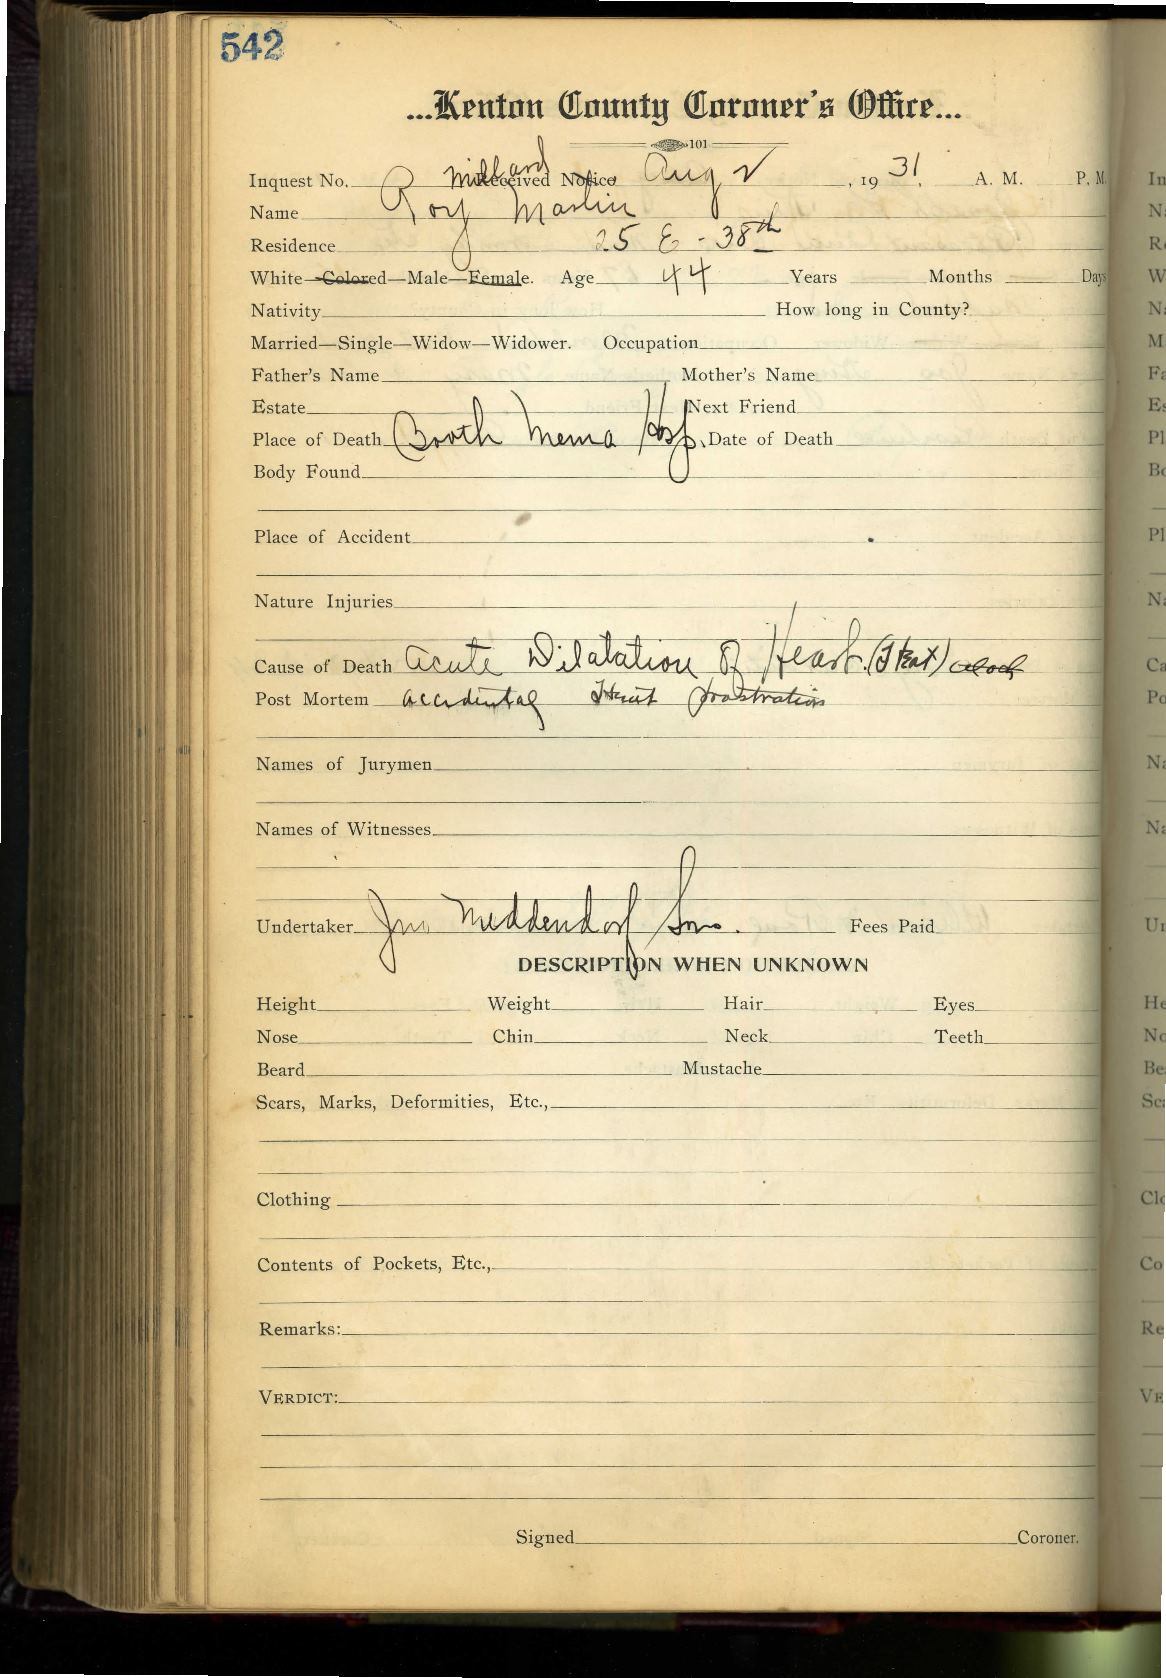 542
...Kenton County Coroner's Office...
101
Millard
Inquest No. Received Notice Aug 2, 1931. A. M. P. M.
Name Roy Martin
Residence 25 E - 38th
White—Colored—Male—Female. Age 44 Years Months Days
Nativity How long in County?
Married—Single—Widow—Widower. Occupation
Father's Name Mother's Name
Estate Next Friend
Place of Death Booth Mema Hosp. Date of Death
Body Found
Place of Accident
Nature Injuries
Cause of Death Acute Dilatation of Heart. (Heat)
Post Mortem accidental Heat prostration
Names of Jurymen
Names of Witnesses
Undertaker Jno Middendorf Sons. Fees Paid
DESCRIPTION WHEN UNKNOWN
Height Weight Hair Eyes
Nose Chin Neck Teeth
Beard Mustache
Scars, Marks, Deformities, Etc.,
Clothing
Contents of Pockets, Etc.,
Remarks:
VERDICT:
Signed Coroner.